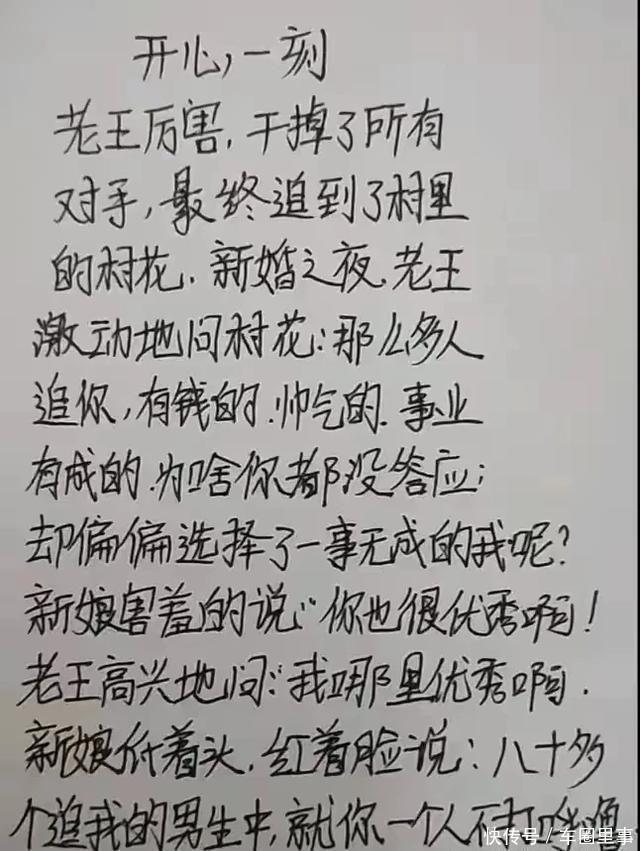 开心,一刻
老王厉害,干掉了所有
对手,最终追到了村里
的村花.新婚之夜.老王
激动地问村花:那么多人
追你,有钱的.帅气的.事业
有成的.为啥你都没答应;
却偏偏选择了一事无成的我呢?
新娘害羞的说:“你也很优秀啊!
老王高兴地问:“我哪里优秀啊.
新娘低着头.红着脸说:八十多
个追我的男生中,就你一个人不打
快传号/车圈里事